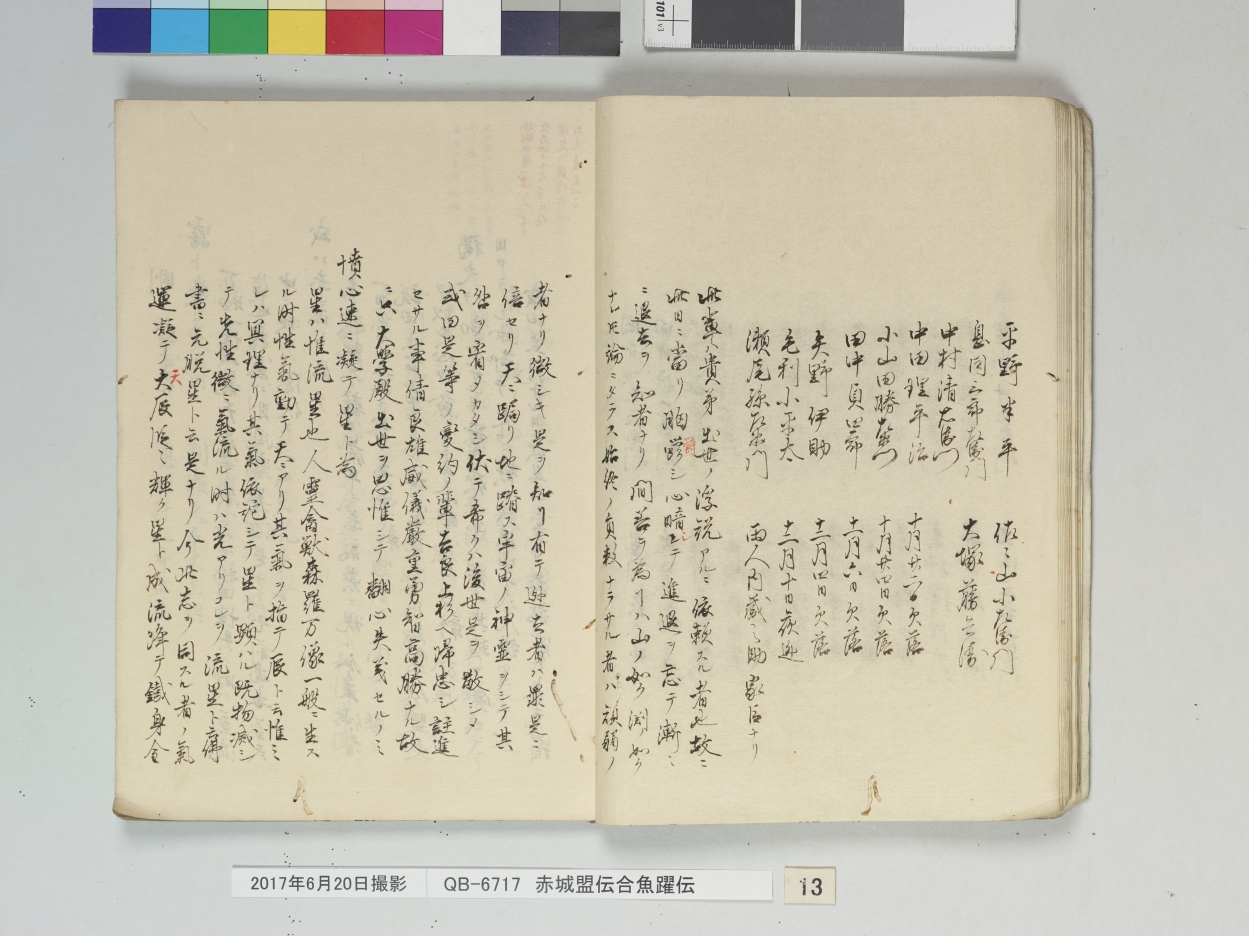 平野半平
佐々山小左衛門
息同三郎右衛門
大塚藤兵衛
中村清右衛門
中田理平治 十月廿一日欠落
小山田勝左衛門 十月廿四日欠落
田中貞四郎 十一月六日欠落
矢野伊助 十二月四日欠落
毛利小平太 十二月十日夜逃
瀬尾孫左衛門 両人内蔵之助家臣ナリ
此輩ハ貴弟出世ノ浮説アルニ依頼スル者也故ニ
此日ニ當リ胸シ心暗シテ進退ヲ忘テ漸ニ
ニ退去ヲ知者ナリ間若ヲ為リハ山ノ如ク淵ノ如ク
ナレ尺論ニタラス始終ノ員数ナラサル者ハ頑弱ノ
者ナリ微シキ是ヲ知リ有テ逃去者ハ罪是ニ
倍セリ天ニ跼リ地ニ蹐ス宇宙ノ神霊ヲシテ其
咎ヲ宥メカタシ伏テ希クハ後世是ヲ敬シメ
或曰是等ノ変約ノ輩吉良上杉ヘ降忠シ註進
セサル事倩良雄威儀厳重勇智高勝ナル故
ニ只大學殿出世ヲ思惟シテ翻心失義セルノミ
憤心速ニ凝テ星ト為
星ハ惟流星也人霊禽獣森羅万像一般ニ生ス
ル時性氣動テ天ニアリ其氣ヲ指テ辰ト云惟ミ
レハ冥理ナリ其氣依託シテ星ト顕ハル既物滅シ
テ光性微ニ氣流ル時ハ光アリコレヲ流星ト稱
書ニ元脱星ト云是ナリ今此志ヲ同スル者ノ氣
運凝テ大辰ニ輝ク星ト成流降テ鐡身金
天
2017年6月20日撮影
QB-6717 赤城盟伝合魚躍伝
13
101 v3